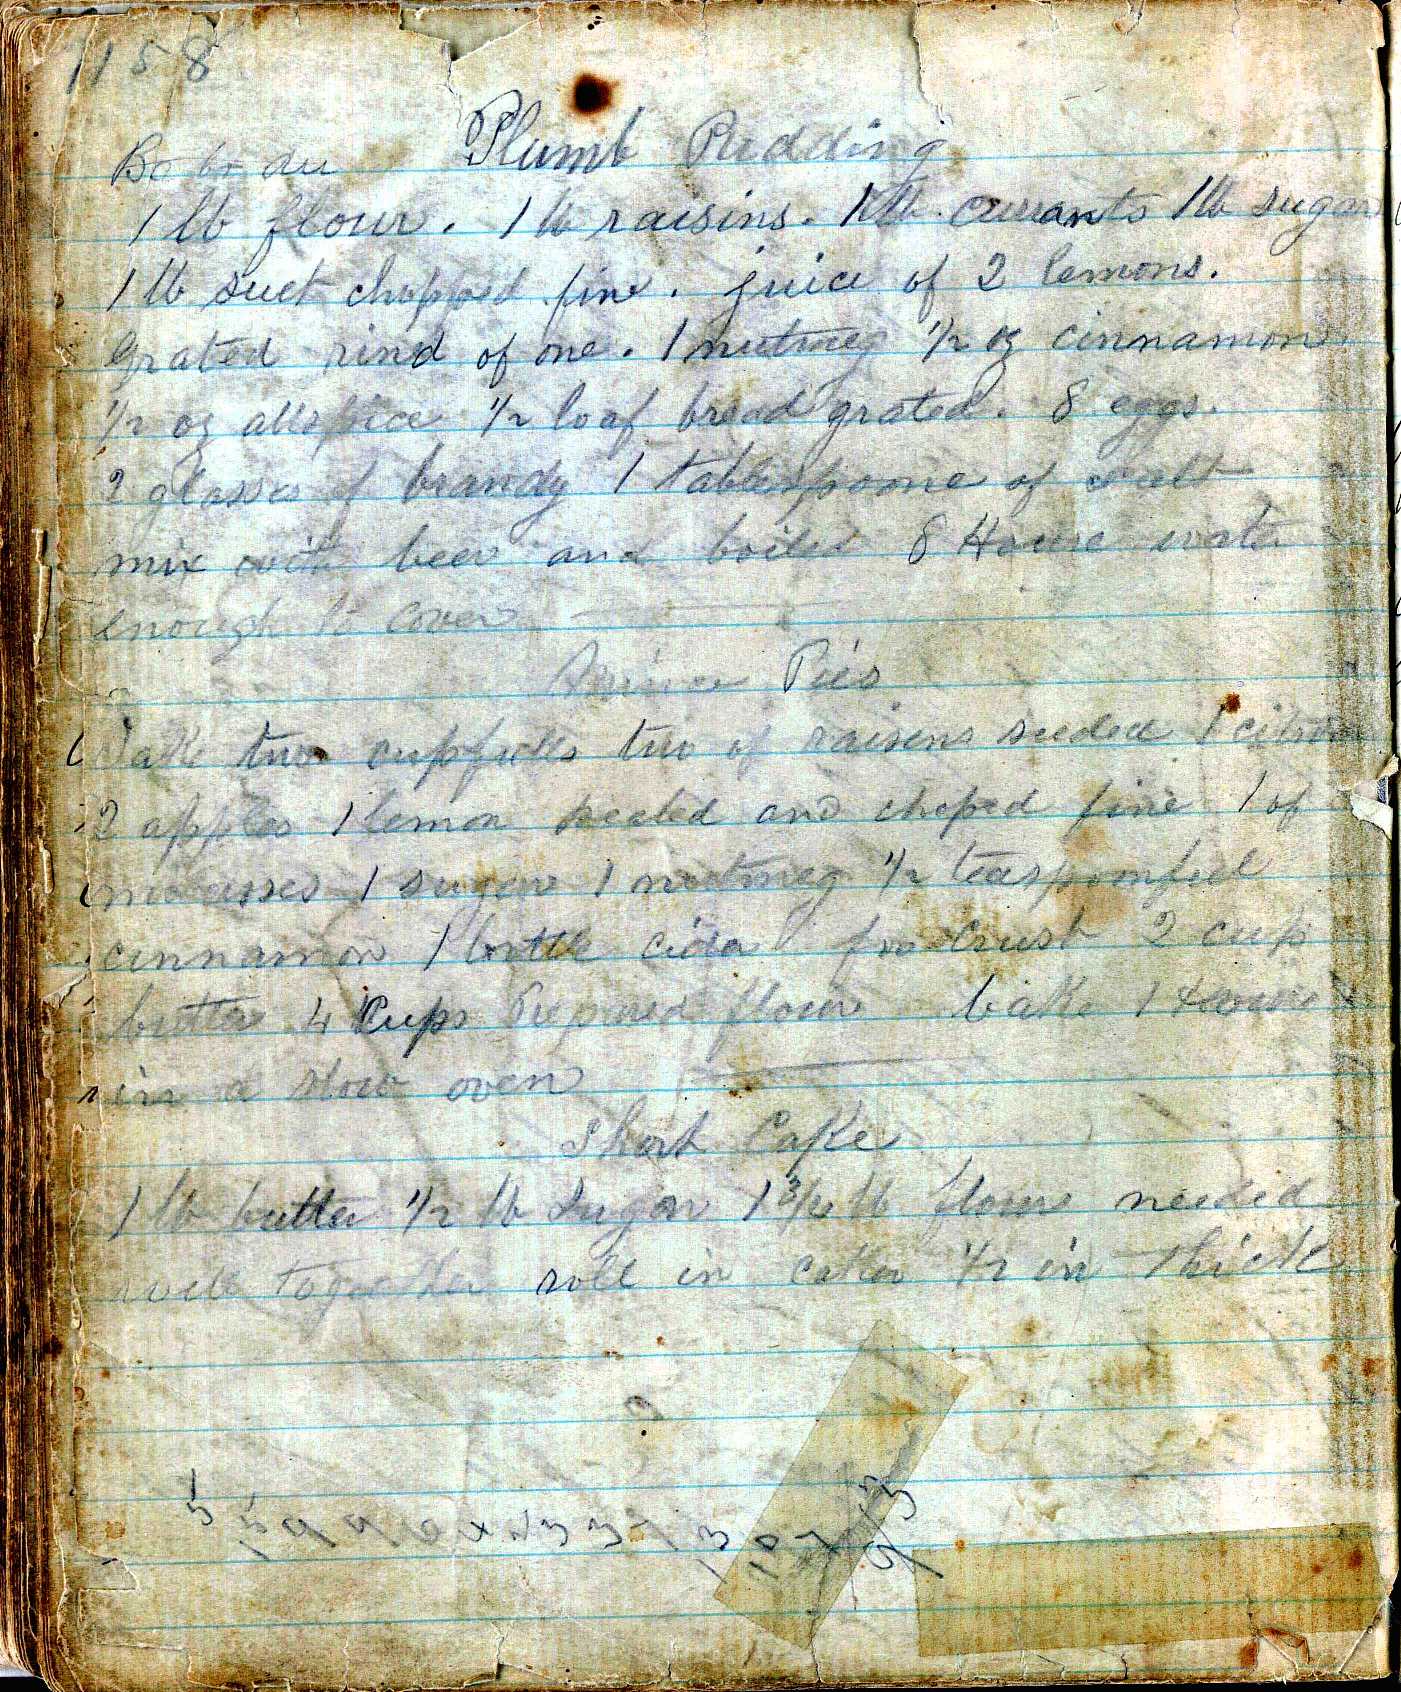 1158
Plumb Pudding
1 lb flour. 1 lb raisins. 1 lb. currants 1 lb sugar
1 lb suet chopped fine. juice of 2 lemons.
Grated rind of one. 1 nutmeg 1/2 oz cinnamon
1/2 oz allspice 1/2 loaf bread grated. 8 eggs.
2 glasses of brandy 1 tablespoone of salt
mix with beer and boiled 8 Hours water
enough to cover
Mince Pies
Take two cupfulls two of raisens seeded 1 citron
2 apples 1 lemon pealed and choped fine 1 of
molasses 1 sugar 1 nutmeg 1/2 teaspoonful
cinnamon 1 bottle cider for Crust 2 cup
butter 4 Cups Prepared flour bake 1 Hour
in a slow oven
Short Cake
1 lb butter 1/2 lb Sugar 1 3/4 lb flour needed
well together roll in cakes 1/2 in thick